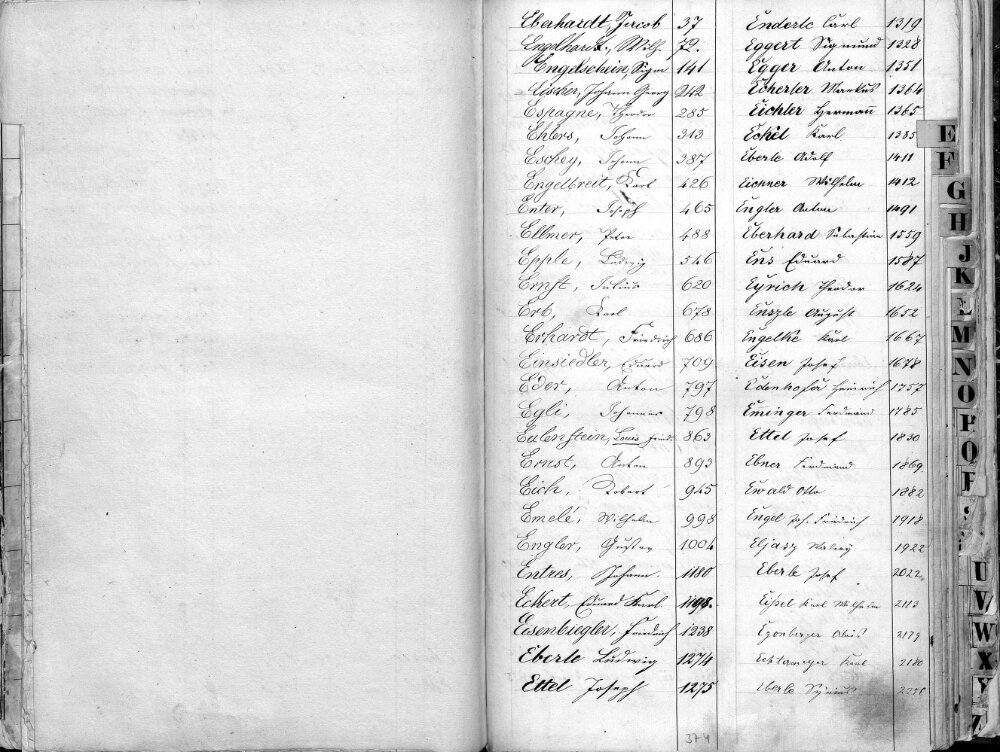 Eberhardt Jacob 37
Engelhardt, Wilh. 72.
Engelschein, Sigm 141
Eischer, Johann Georg 242
Espagne, Theodor 285
Ehlers, Johann 313
Eschey, Johann 387
Engelbreit, Karl 426
Enter, Joseph 465
Ellmer, Peter 488
Epple, Ludwig 546
Ernst, Julius 620
Ert, Karl 678
Erhardt, Friedrich 686
Einsiedler, Eduard 709
Eder, Anton 797
Egli, Johannes 798
Eulenstein, Louis Fried. 863
Ernst, Anton 893
Eich, Robert 945
Emelé, Wilhelm 998
Engler, Gustav 1004
Entres, Johann 1180
Eckert, Eduard Karl 1198.
Eisenbiegler, Friedrich 1238
Eberle Ludwig 1274
Ettel Joseph 1275
374
Enderle Carl 1319
Eggert Sigmund 1328
Egger Anton 1351
Echerler Markus 1364
Eichler Hermann 1365
Eckel Karl 1385
Eberle Adolf 1411
Eichner Wilhelm 1412
Engler Anton 1491
Eberhard Sebastian 1559
Ens Eduard 1587
Eyrich Theodor 1624
Enszle August 1652
Engelke Karl 1667
Eisen Josef 1678
Edenhofer Heinrich 1757
Eminger Ferdinand 1785
Ettel Josef 1830
Ebner Ferdinand 1869
Ewald Otto 1882
Engel Joh. Friedrich 1918
Eljasz Walery 1922
Eberle Josef 2022
Eissel Karl Wilhelm 2113
Egenberger Alois 2179
Echtameyer Karl 2180
Eberle
E
F
G
H
J
K
L
M
N
O
P
Q
R
S
U
V
W
X
Y
Z